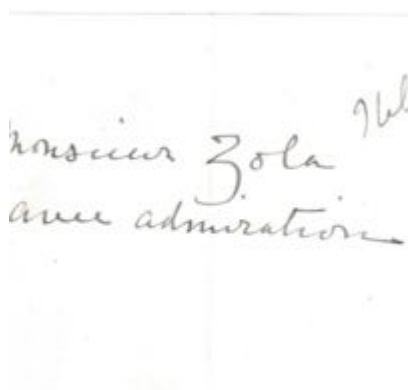 monsieur Zola
avec admiration